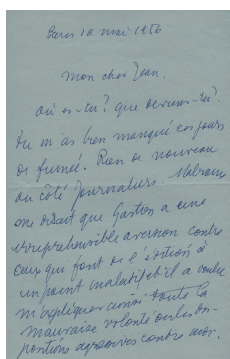 Paris 10 mai 1956
Mon cher Jean.
où es-tu? que deviens-tu?
Tu m'as bien manqué ces jours
Rien de nouveau
du côté Journaliers Malraux
me disait que Gaston a une
irrepréhensible aversion contre
ceux qui font de l'édition à
un point maladif et il a voulu
m'expliquer ainsi toute la
mauvaise volonté ou les
contre moi.